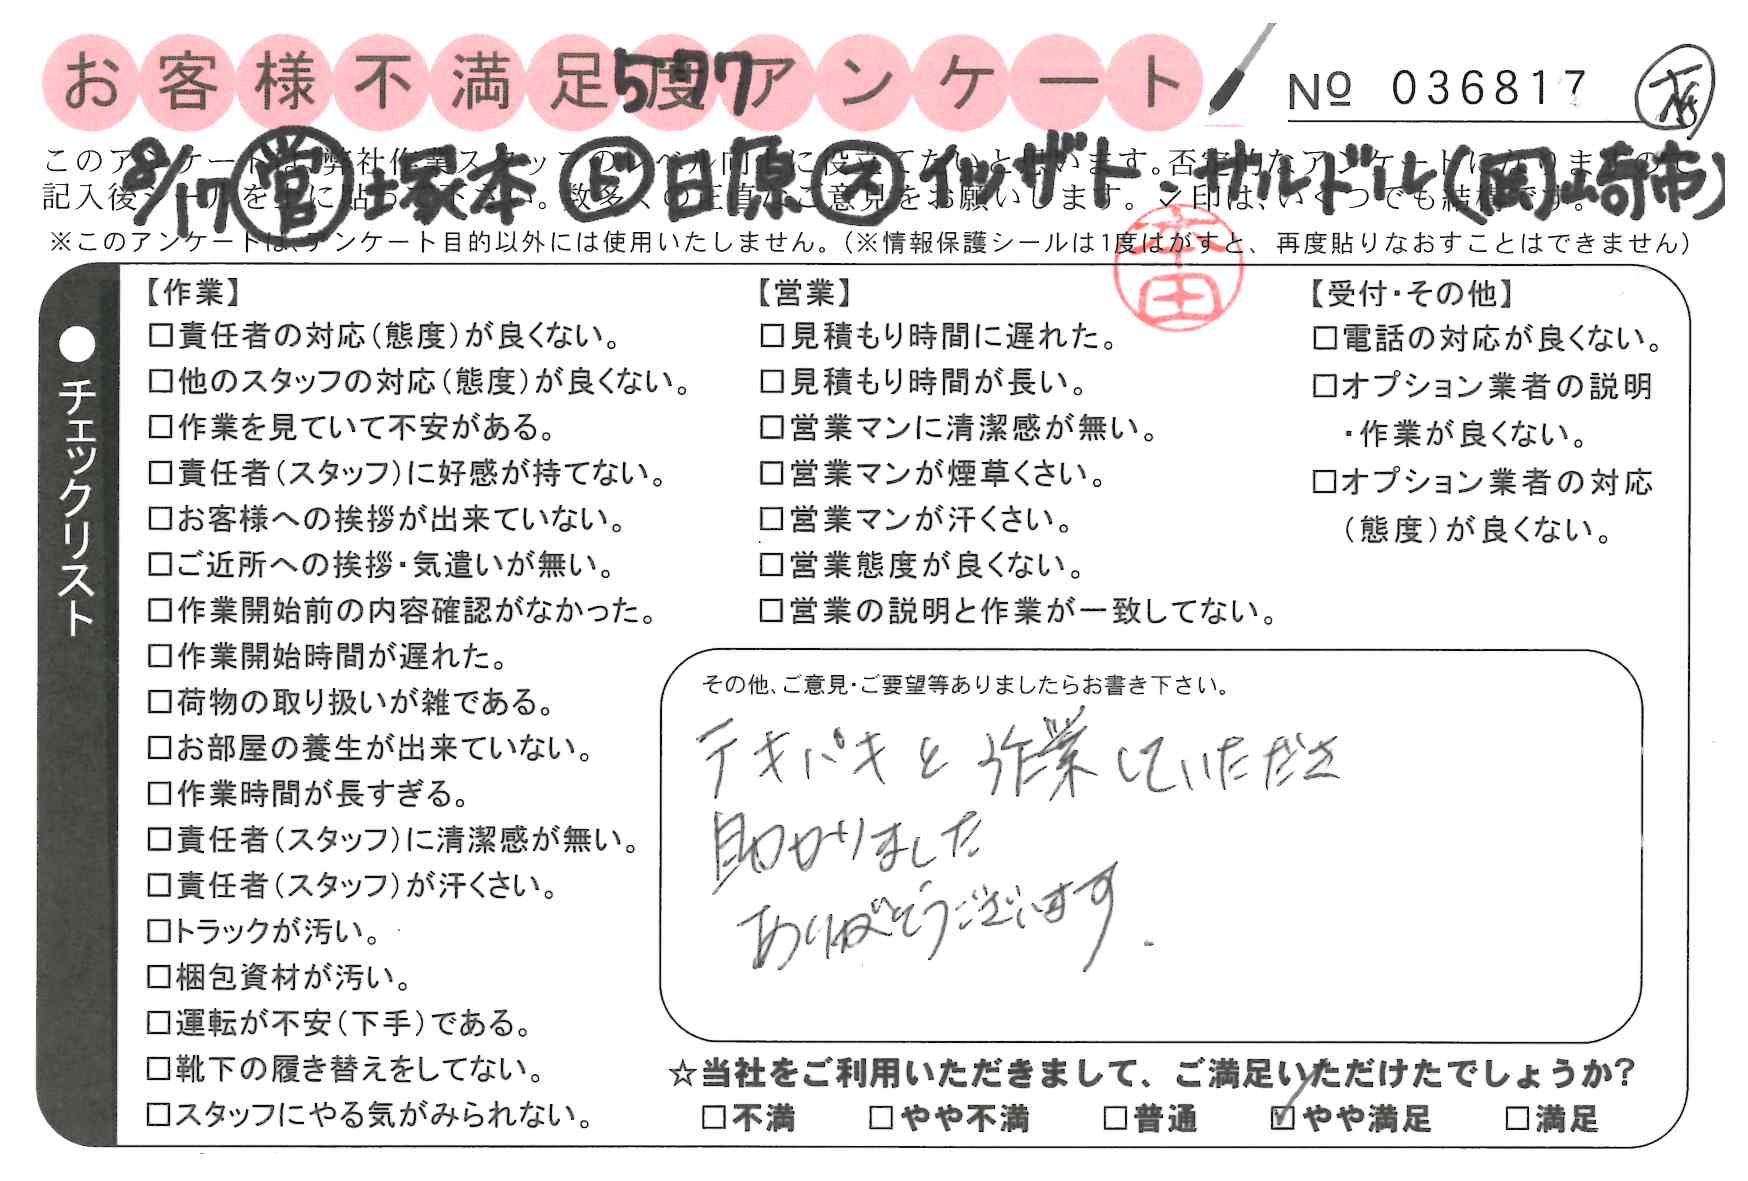 お客様不満足度アンケート
577
Nº 036817
このアンケートは、弊社作業スタッフのレベル向上に役立てたいと思います。否定的なアンケートになりますので
記入後シールを上に貼って下さい。数多くの正直なご意見をお願いします。✓印は、いくつでも結構です。
8/17 営 塚本 ド 日原 ス イッザト・サルドル(岡崎市)
※このアンケートは、アンケート目的以外には使用いたしません。(※情報保護シールは1度はがすと、再度貼りなおすことはできません)
本田
●チェックリスト
【作業】
□責任者の対応(態度)が良くない。
□他のスタッフの対応(態度)が良くない。
□作業を見ていて不安がある。
□責任者(スタッフ)に好感が持てない。
□お客様への挨拶が出来ていない。
□ご近所への挨拶・気遣いが無い。
□作業開始前の内容確認がなかった。
□作業開始時間が遅れた。
□荷物の取り扱いが雑である。
□お部屋の養生が出来ていない。
□作業時間が長すぎる。
□責任者(スタッフ)に清潔感が無い。
□責任者(スタッフ)が汗くさい。
□トラックが汚い。
□梱包資材が汚い。
□運転が不安(下手)である。
□靴下の履き替えをしてない。
□スタッフにやる気がみられない。
【営業】
□見積もり時間に遅れた。
□見積もり時間が長い。
□営業マンに清潔感が無い。
□営業マンが煙草くさい。
□営業マンが汗くさい。
□営業態度が良くない。
□営業の説明と作業が一致してない。
【受付・その他】
□電話の対応が良くない。
□オプション業者の説明
・作業が良くない。
□オプション業者の対応
(態度)が良くない。
その他、ご意見・ご要望等ありましたらお書き下さい。
テキパキと作業していただき
助かりました
ありがとうございます.
☆当社をご利用いただきまして、ご満足いただけたでしょうか?
□不満 □やや不満 □普通 ☑やや満足 □満足